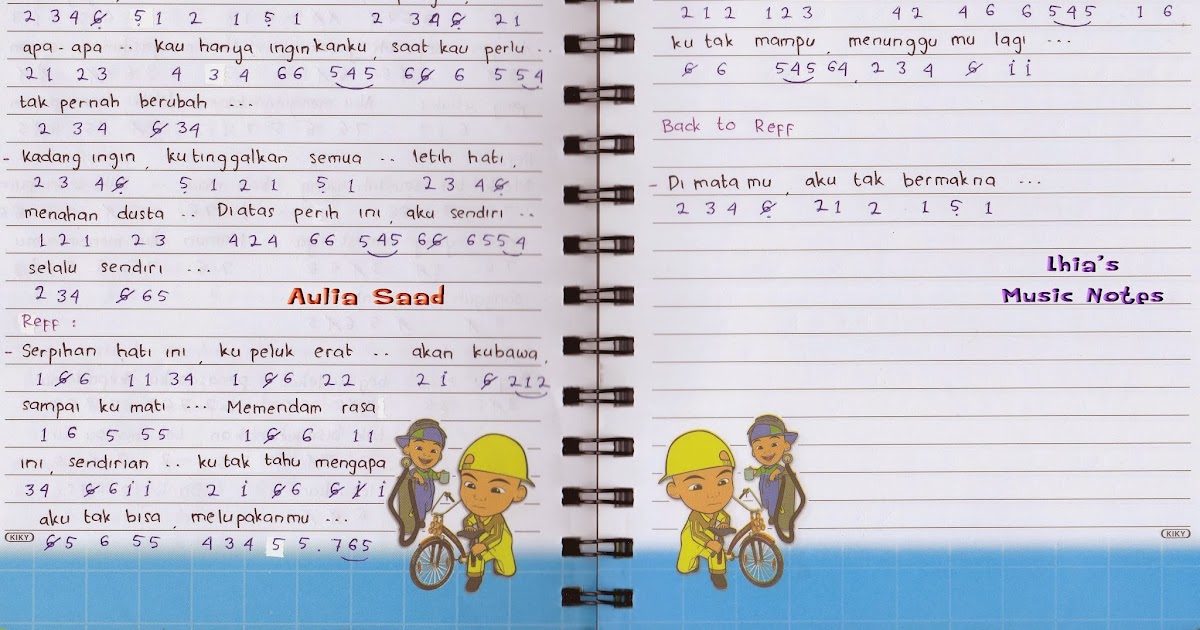 2 3 4 6̸ 5̣ 1 2 1 5̣ 1 2 3 4 6̸ 2 1
apa - apa .. kau hanya inginkanku, saat kau perlu ..
2 1 2 3 4 3 4 6 6 5 4 5 6 6̸ 6 5 5 4
tak pernah berubah ...
2 3 4 6̸ 3 4
- Kadang ingin, ku tinggalkan semua .. letih hati,
2 3 4 6̸̣ 5̣ 1 2 1 5̣ 1 2 3 4 6̸̣
menahan dusta .. Diatas perih ini, aku sendiri ..
1 2 1 2 3 4 2 4 6 6 5 4 5 6 6̸ 6 5 5 4
selalu sendiri ...
2 3 4 6̸ 6 5
Aulia Saad
Reff :
- Serpihan hati ini, ku peluk erat .. akan kubawa,
1 6̸ 6 1 1 3 4 1 6̸ 6 2 2 2 i 6̸ 2 1 2
sampai ku mati ... Memendam rasa
1 6 5 5 5 1 6̸ 6 1 1
ini, sendirian .. ku tak tahu mengapa
3 4 6̸ 6 i i 2 i 6̸ 6 6̸ i̸ i
aku tak bisa, melupakanmu ...
6̸ 5 6 5 5 4 3 4 5 5 . 7 6 5
KIKY
2 1 2 1 2 3 4 2 4 6 6 5 4 5 1 6
ku tak mampu, menunggu mu lagi ...
6̸ 6 5 4 5 6 4, 2 3 4 6̸ i i
Back to Reff
- Di mata mu, aku tak bermakna ...
2 3 4 6̸̣ 2 1 2 1 5̣ 1
Lhia's
Music Notes
KIKY